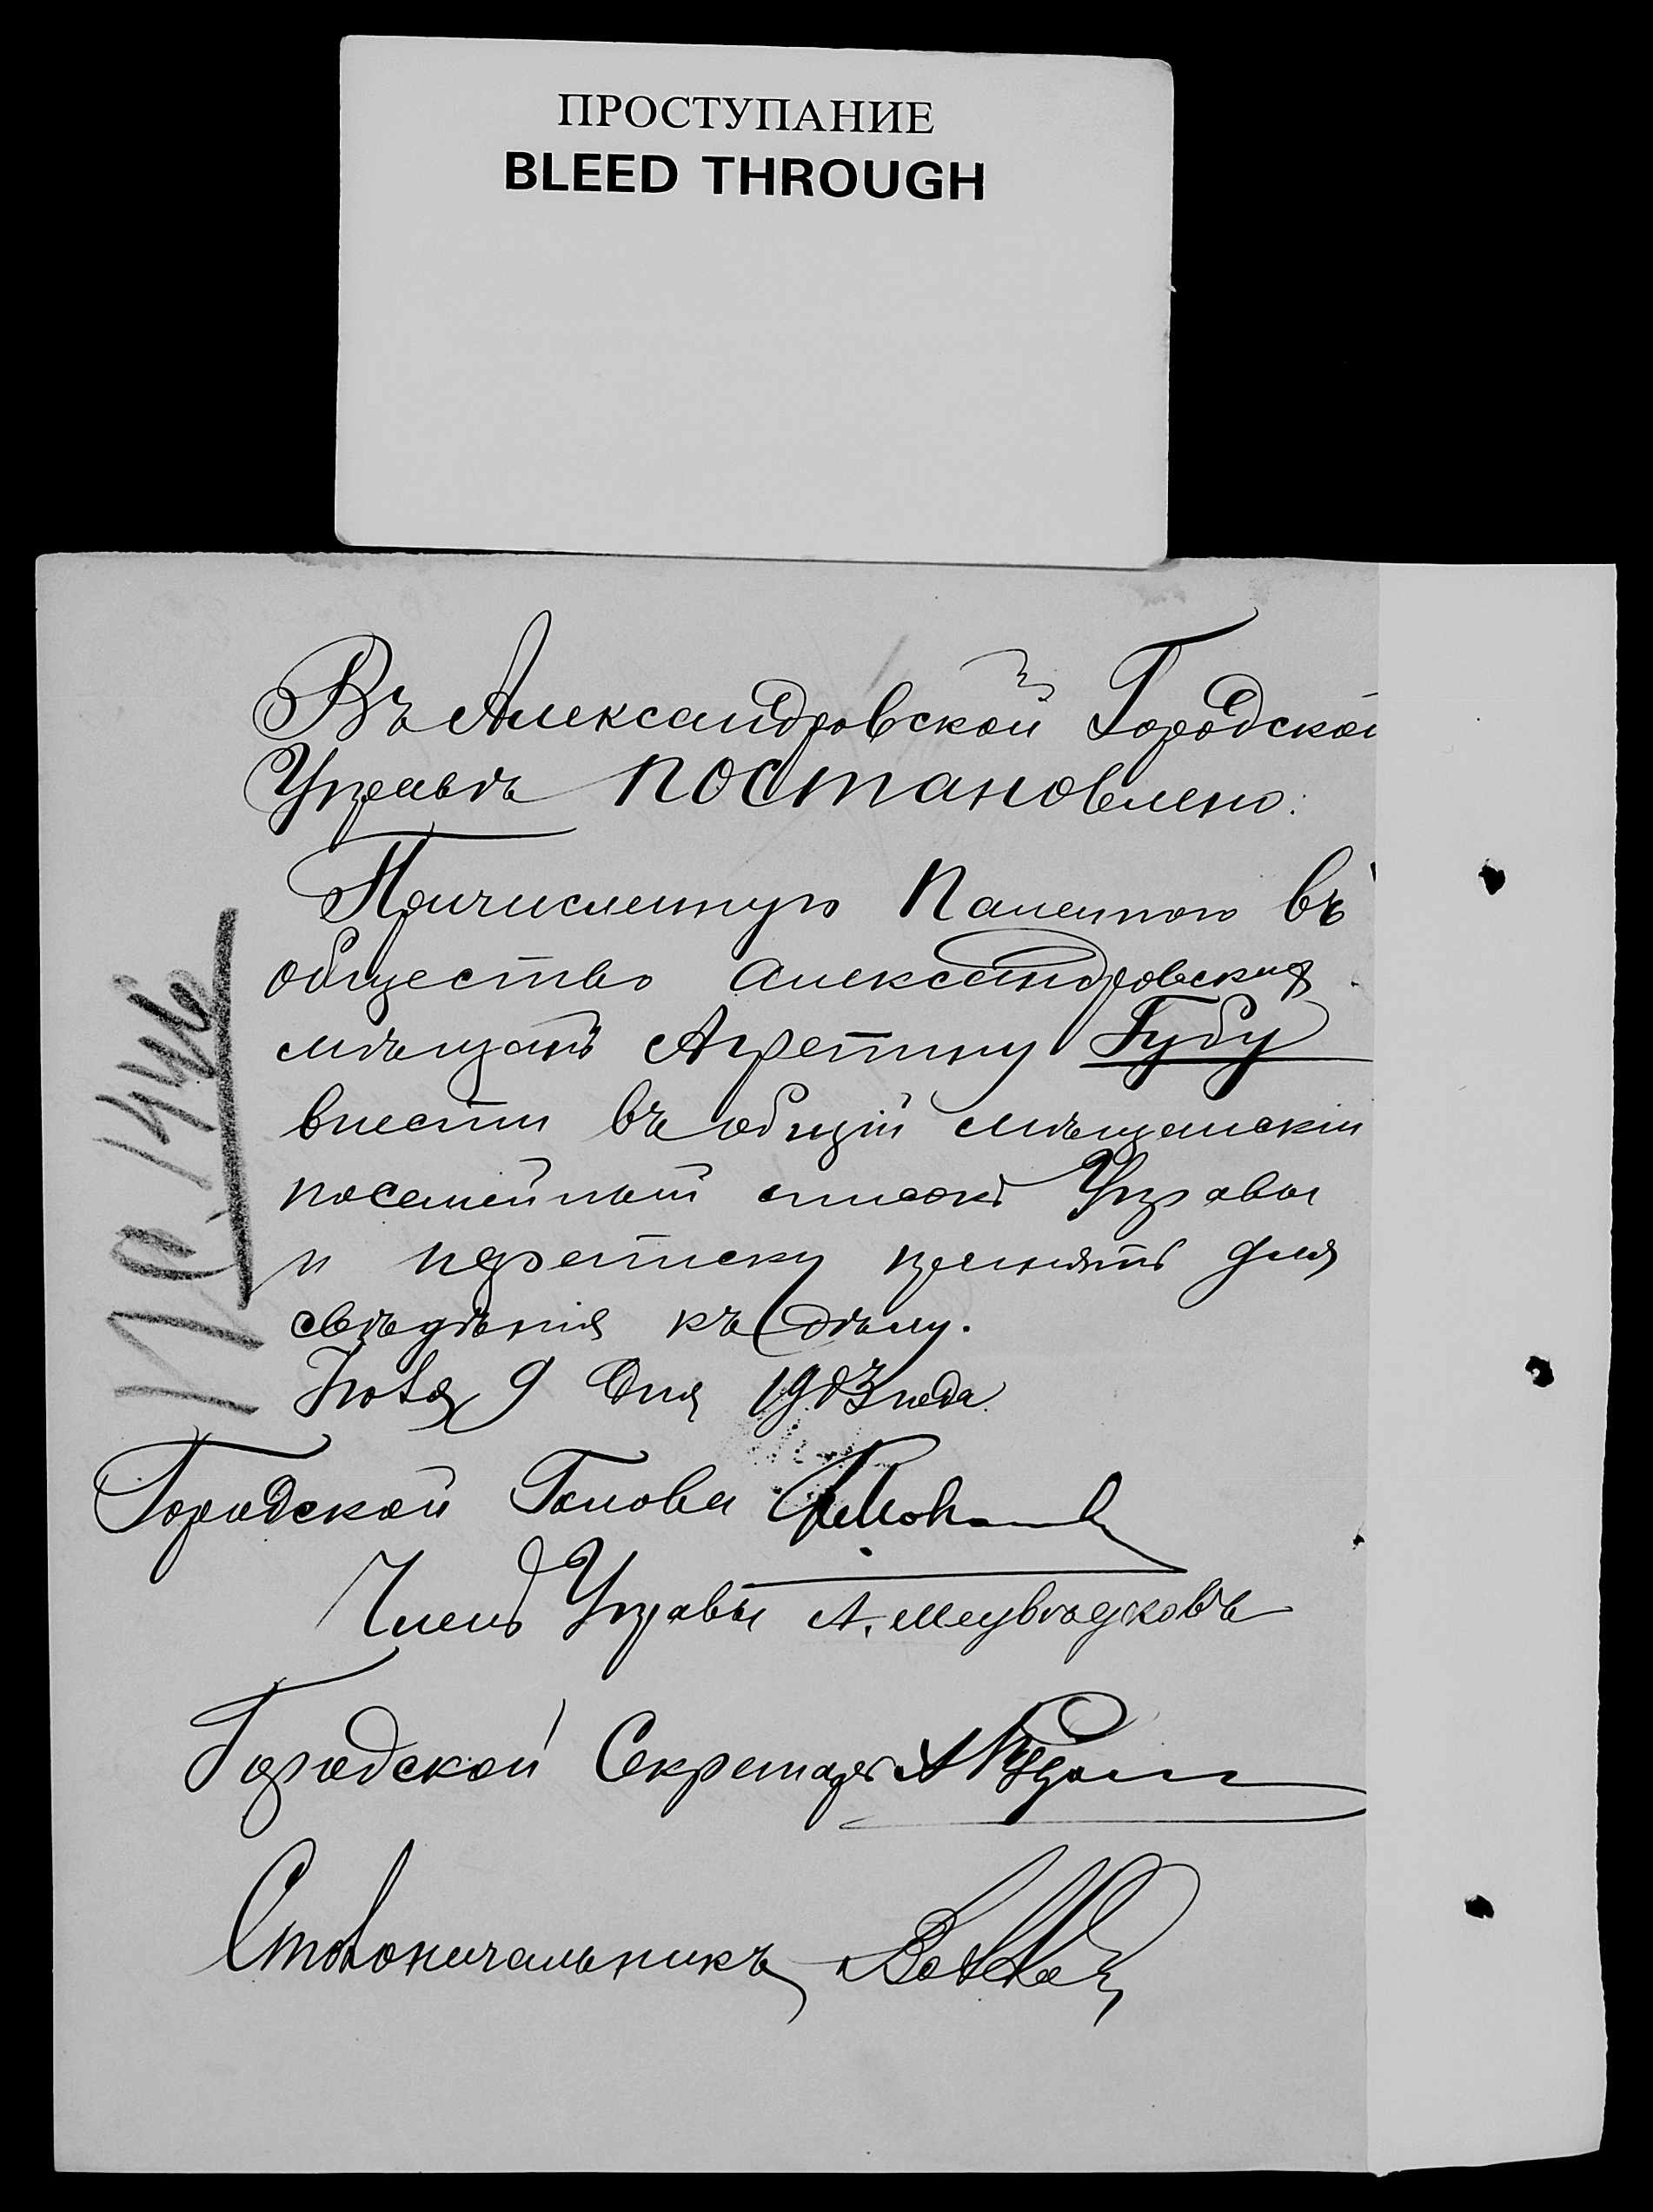 ПРОСТУПАНИЕ
BLEED THROUGH
Въ Александровской Городской
Управѣ постановлено:
Причисленную Палатою въ
общество александровскихъ
мѣщанъ Агрепину Губу
внести въ общій мѣщанскій
посемейный списокъ Управы
и переписку принять для
свѣдѣнія къ дѣлу.
Іюля 9 дня 1903 года
Городской Голова
Членъ Управы А. Медвѣдковъ
Городской Секретарь
Столоначальникъ